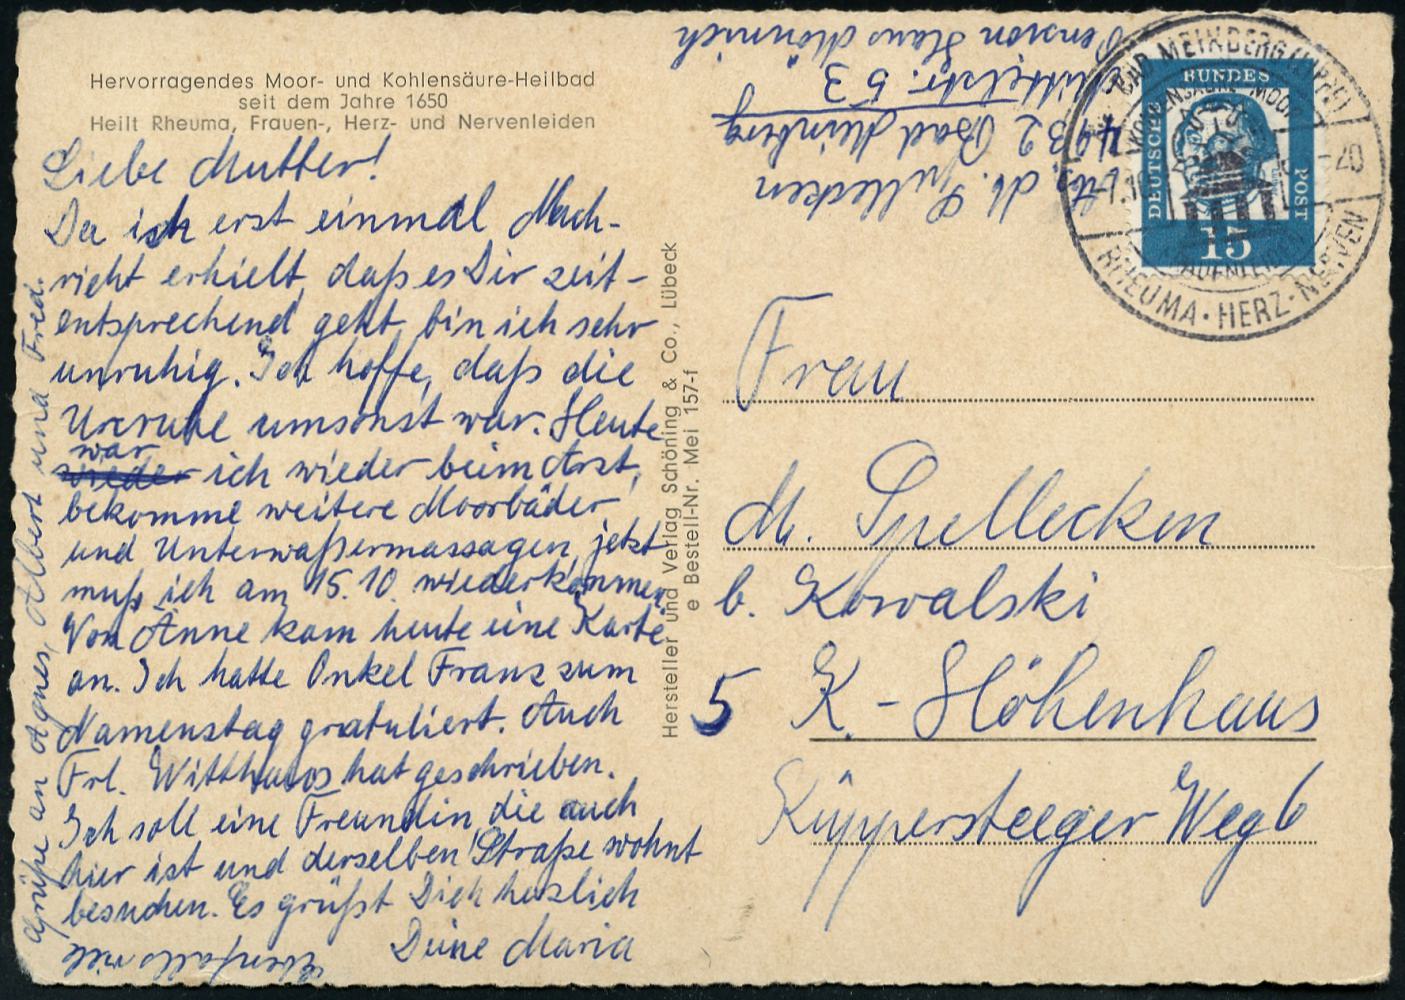 Hervorragendes Moor- und Kohlensäure-Heilbad
seit dem Jahre 1650
Heilt Rheuma, Frauen-, Herz- und Nervenleiden
Liebe Mutter!
Da ich erst einmal Nach-
richt erhielt, daß es Dir zeit-
entsprechend geht, bin ich sehr
unruhig. Ich hoffe, daß die
Unruhe umsonst war. Heute
war
wieder ich wieder beim Arzt,
bekomme weitere Moorbäder
und Unterwaßermassagen, jetzt
muß ich am 15.10. wiederkommen.
Von Änne kam heute eine Karte
an. Ich hatte Onkel Franz zum
Namenstag gratuliert. Auch
Frl. Witthaus hat geschrieben.
Ich soll eine Freundin die auch
hier ist und derselben Straße wohnt
besuchen. Es grüßt Dich herzlich
Deine Maria
Ebenfalls viele
Grüße an Agnes, Albert und Fred.
Hersteller und Verlag Schöning & Co., Lübeck
e Bestell-Nr. Mei 157-f
Abs. M. Spellecken
4932 Bad Meinberg
53
Pension Haus Mönnich
BAD MEINBERG (LIPPE)
KOHLENSÄURE MOOR
-20
RHEUMA·HERZ·NERVEN
FRAUENLEIDEN
DEUTSCHE
BUNDES
POST
15
Frau
M. Spellecken
b. Kowalski
5 K-Höhenhaus
Küppersteeger Weg 6